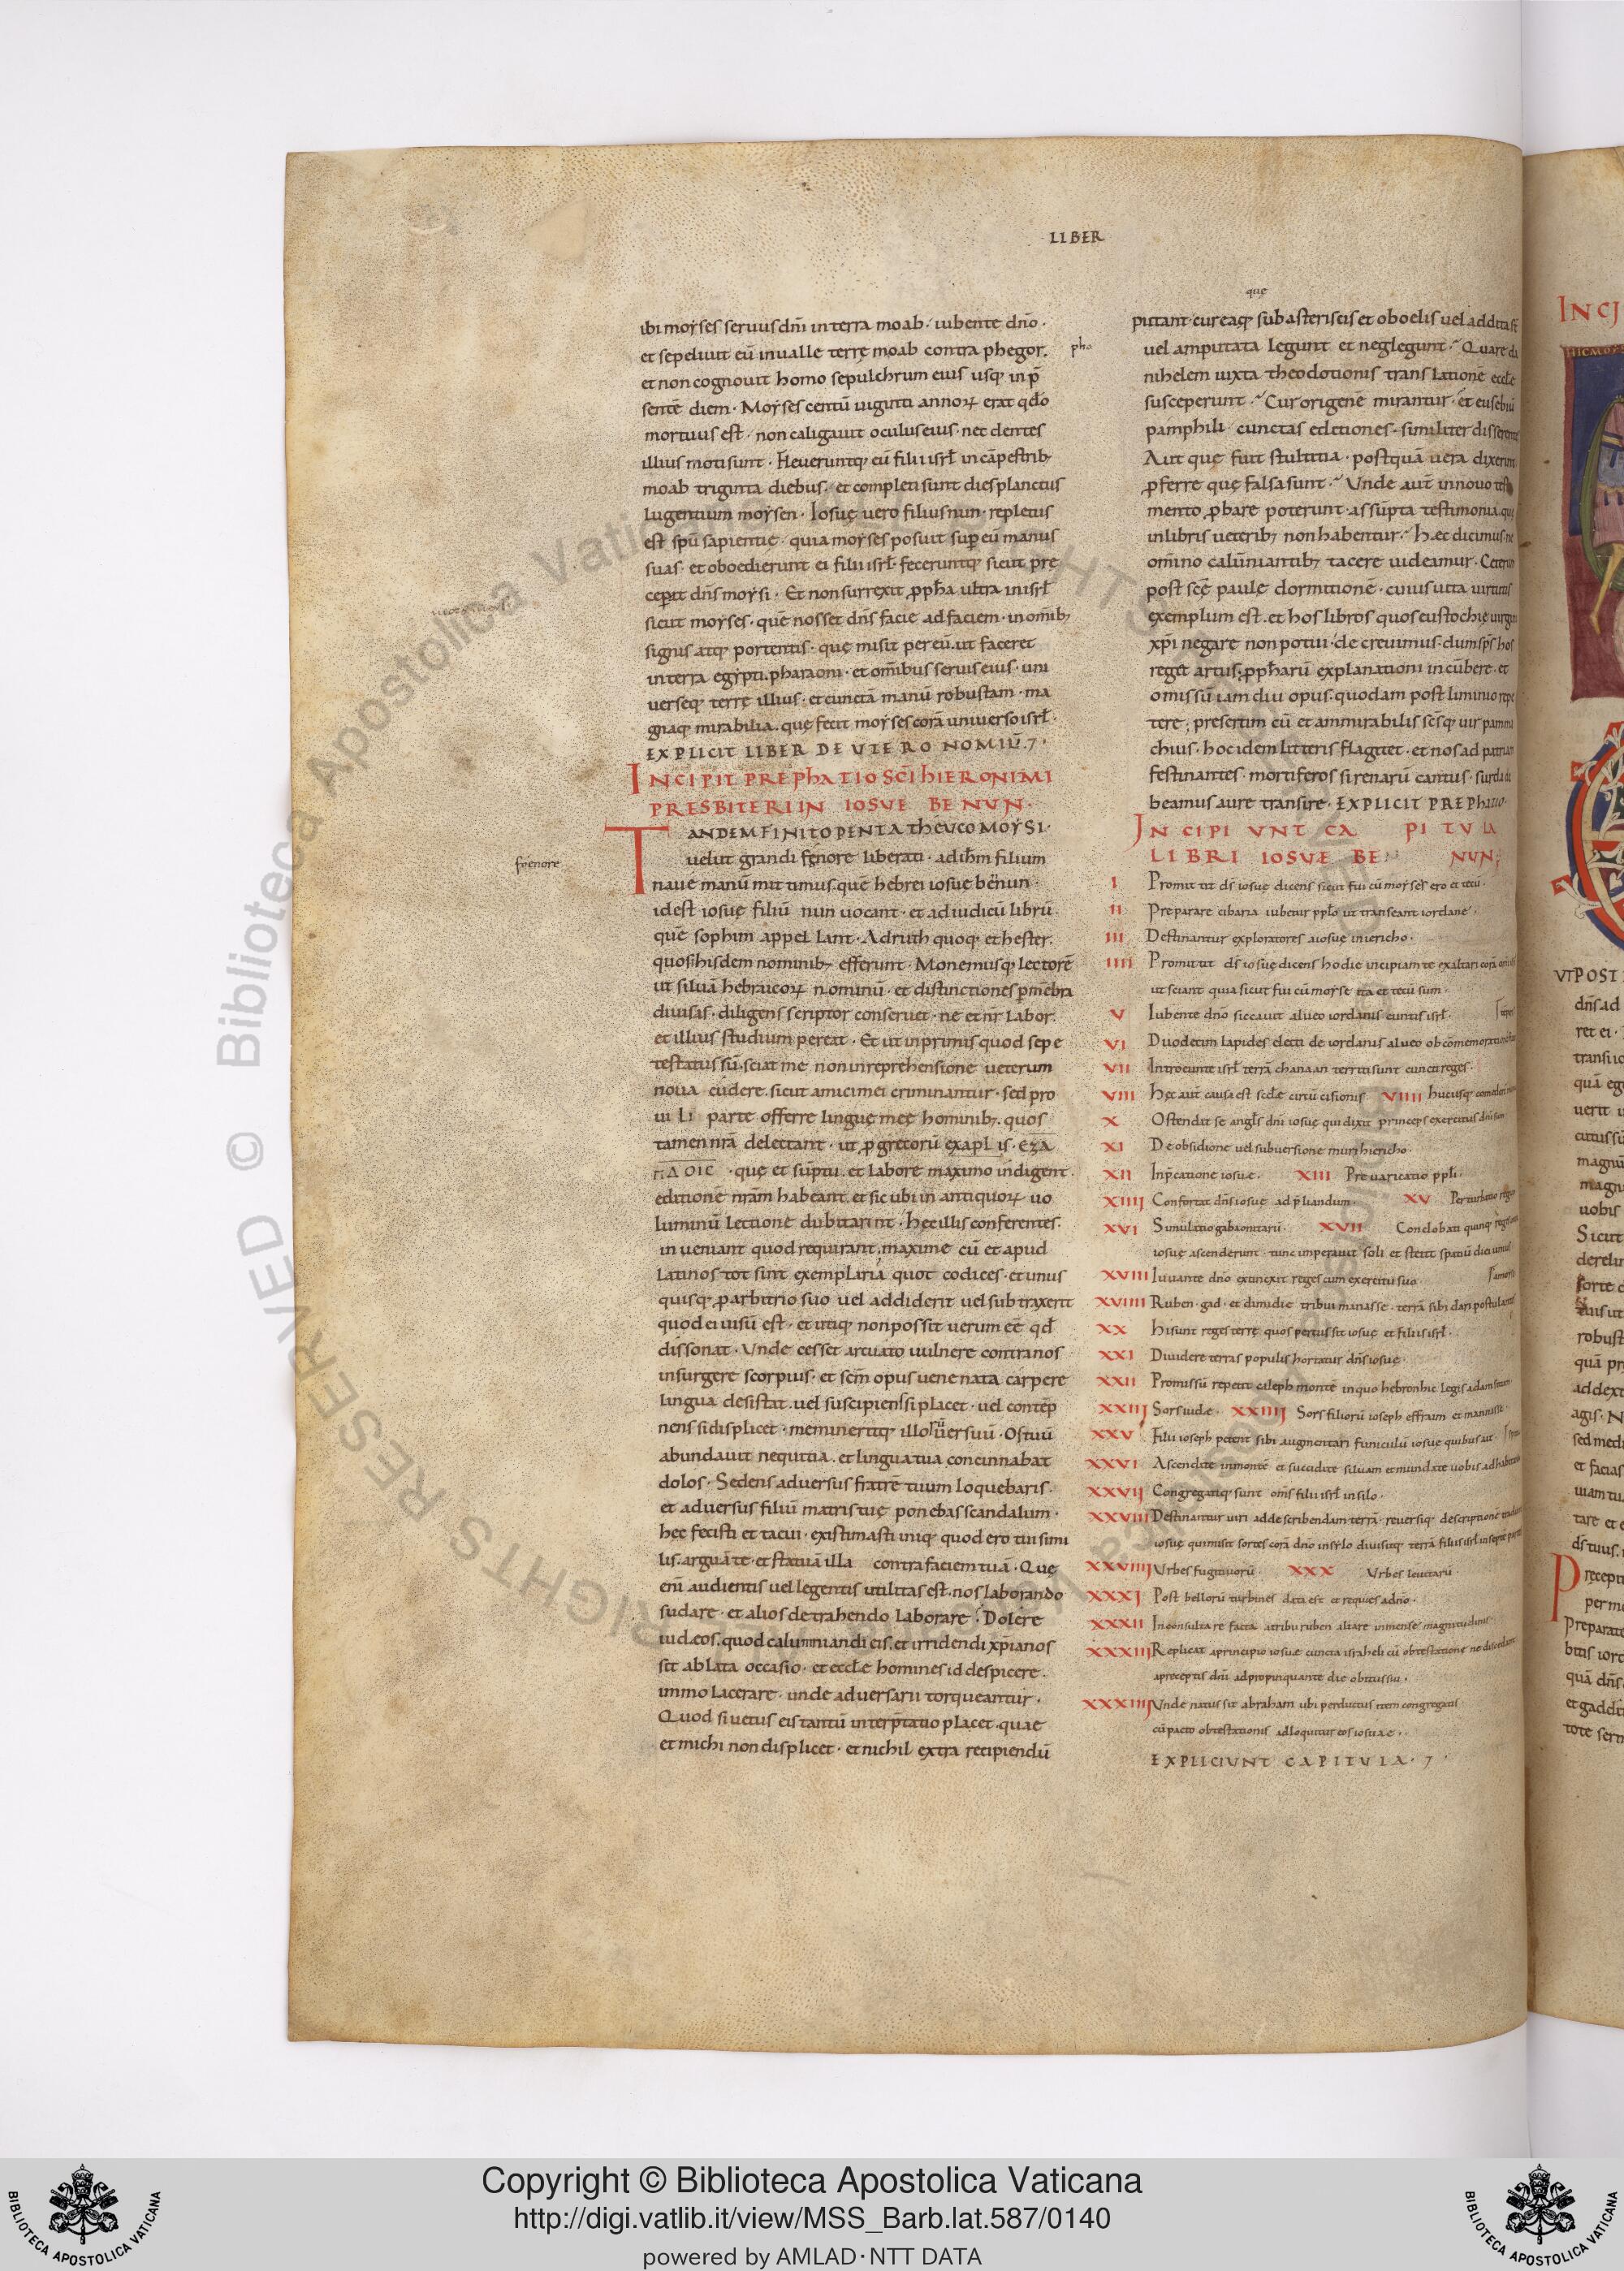 LIBER
ibi moyses seruus dn̄i in terra moab · iubente dn̄o ·
et sepeliuit eū in ualle terrę moab contra phegor.
et non cognouit homo sepulchrum eius usq; in p̄
sentē diem · Moyses centū uiginti annoꝝ erat qđo
mortuus est · non caligauit oculus eius · nec dentes
illius moti sunt · Fleueruntq; eū filii isrł in cāpestrib;
moab triginta diebus · et completi sunt dies planctus
lugentium moysen · Iosuę uero filius nun · repletus
est spū sapientię · quia moyses posuit sup eū manus
suas · et oboedierunt ei filii isrł · feceruntq; sicut pre
cepit dn̄s moysi · Et non surrexit ꝓpħa ultra in isrł
sicut moyses · quē nosset dn̄s facie ad faciem · in om̄ib;
signis atq; portentis · quę misit per eū · ut faceret
in terra egypti · pharaoni · et om̄ibus seruis eius · uni
uerseq; terrę illius · et cunctā manū robustam · ma
gnaq; mirabilia · quę fecit moyses corā uniuerso isrł ·
EXPLICIT LIBER DEUTERONOMIŪ. 7 ·
INCIPIT PREPHATIO SC̄I HIERONIMI
PRESBITERI IN IOSVE BENNUN ·
TANDEM FINITO PENTATHEUCO MOYSI ·
fęnore
uelut grandi fęnore liberati · ad ih̄m filium
naue manū mittimus · quē hebrei iosuę bennun
id est iosuę filiū nun uocant · et ad iudicū librū ·
quē sophtim appellant · Ad ruth quoq; et hester.
quos hisdem nominib; efferunt · Monemusq; lectorē
ut siluā hebraicoꝝ nominū · et distinctiones ꝑ mēbra
diuisas · diligens scriptor conseruet · ne et nr̄ labor.
et illius studium pereat · Et ut inprimis quod sepe
testatus sū · sciat me non in reprehensione ueterum
noua cudere · sicut amici mei criminantur · sed pro
uiLi parte offerre linguę męę hominib; · quos
tamen nr̄a delectant · ut ꝓ grecorū exaplis · EΞA
ΠΛΟΙC · quę et sūptu · et labore maximo indigent ·
editionē nr̄am habeant · et sic ubi in antiquoꝝ uo
luminū lectione dubitarint · hęc illis conferentes ·
inueniant quod requirant ; maxime cū et apud
latinos tot sint exemplaria quot codices · et unus
quisq; ꝓ arbitrio suo uel addiderit uel subtraxerit
quod ei uisū est · et utiq; non possit uerum eē qđ
dissonat · Unde cesset arcuato uulnere contra nos
insurgere scorpius · et sc̄m opus uenenata carpere
lingua desistat · uel suscipiens si placet · uel contēp
nens si displicet · memineritq; illoꝝ uersuū · Os tuū
abundauit nequitia · et lingua tua concinnabat
dolos · Sedens aduersus fratrē tuum loquebaris ·
et aduersus filiū matris tuę ponebas scandalum ·
hęc fecisti et tacui · existimasti iniq; quod ero tui simi
lis · arguā te · et statuā illa contra faciem tuā · Que
eni audientis uel legentis utilitas est · nos laborando
sudare · et alios detrahendo laborare · Dolere
iudeos · quod calumniandi eis · et irridendi xp̄ianos
sit ablata occasio · et eccłe homines id despicere ·
immo lacerare · unde aduersarii torqueantur ·
Quod si uetus eis tantū interp̄tatio placet · quae
et michi non displicet · et nichil extra recipiendū
quę
putant · cur eaq; sub asteriscis et oboelis uel addita st̄
uel amputata legunt et neglegunt · Quare da
nihelem iuxta theodotionis translationē eccłe
susceperunt · Cur origenē mirantur · et eusebiū
pamphili cunctas editiones · similiter disserentē
Aut quę fuit stultitia · postquā uera dixerint
ꝓferre quę falsa sunt · Unde aut̄ in nouo testa
mento ꝓbare poterunt · assūpta testimonia · quę
in libris ueterib; non habentur · Hęc dicimus · ne
om̄ino calūniantib; tacere uideamur · Ceterum
post sc̄ę paulę dormitionē · cuius uita uirtutis
exemplum est · et hos libros quos eustochię uirgini
xp̄i negare non potui · decreuimus · dum sp̄s hos
reget artus ; ꝓpħarū explanationi incūbere · et
omissū iam diu opus · quodam postliminio repe
tere ; presertim cū et ammirabilis sc̄sq; uir pamma
chius · hoc idem litteris flagitet · et nos ad patriam
festinantes · mortiferos sirenarū cantus · surda de
beamus aure transire · EXPLICIT PREPHATIO
INCIPIUNT CAPITULA
LIBRI IOSVE BENNUN;
I Promittit ds̄ iosuę dicens sicut fui cū moyse ero et tecū ·
II Preparare cibaria iubetur pplo ut transeant iordanē ·
III Destinantur exploratores a iosuę in iericho ·
IIII Promittit ds̄ iosuę dicens hodie incipiam te exaltari corā om̄ib;
ut sciant quia sicut fui cū moyse ita et tecū sum ·
V Iubente dn̄o siccauit alueo iordanis euntis isrł ·
VI Duodecim lapides electi de iordanis alueo ob cōmemorationē
VII Introeunte isrł terrā chanaan territi sunt cuncti reges ·
VIII Hęc aut̄ causa est secłe circūcisionis VIIII Hucusq; comederunt
X Ostendit se angłs dn̄i iosuę qui dixit princeps exercitus dn̄i sum
XI De obsidione uel subuersione muri hiericho ·
XII Inp̄catione iosuę. XIII Preuaricatio ppli ·
XIIII Confortat dn̄s iosuę ad p̄liandum XV Perturbatio regū
XVI Simulatio gabaonitarū · XVII Concłobati quinq; reges
iosuę ascenderunt · tunc imperauit soli et stetit spatiū diei unius
XVIII Iuuante dn̄o extinxit reges cum exercitu suo.
XVIIII Ruben · gad · et dimidie tribui manasse · terrā sibi dari postulant
XX Hi sunt reges terrę quos percussit iosuę et filii isrł ·
XXI Diuidere terras populis hortatus dn̄s iosuę ·
XXII Promissū repetit caleph montē in quo hebron hic legis adam situm
XXIIJ Sors iudę · XXIIIJ Sors filiorū ioseph effraim et manasse ·
XXV Filii ioseph petent sibi augmentari funiculū iosuę quibus ait ·
XXVI Ascendite in montē et succidite siluam et mundate uobis ad habitandū
XXVIJ Congregatiq; sunt om̄s filii isrł in silo ·
XXVIIJ Destinantur uiri ad describendam terrā · reuersiq; descriptionē tradunt
iosuę qui misit sortes corā dn̄o in sylo diuisitq; terrā filiis isrł in septē partes
XXVIIIJ Urbes fugitiuorū · XXX Urbes leuitarū ·
XXXJ Post bellorū turbines data est et requies a dn̄o ·
XXXII Inconsulta re facta a tribu ruben altare inmensę magnitudinis ·
XXXIIJ Replicat a principio iosuę cuncta israheli cū obtestatione ne discedant
a preceptis dn̄i adpropinquante die obitus sui ·
XXXIIIJ Unde natus sit abraham ubi perductus item congregatis
cū pacto obtestationis adloquitur eos iosuae ·
EXPLICIUNT CAPITULA · 7 ·
Copyright © Biblioteca Apostolica Vaticana
http://digi.vatlib.it/view/MSS_Barb.lat.587/0140
powered by AMLAD·NTT DATA
BIBLIOTECA APOSTOLICA VATICANA
BIBLIOTECA APOSTOLICA VATICANA